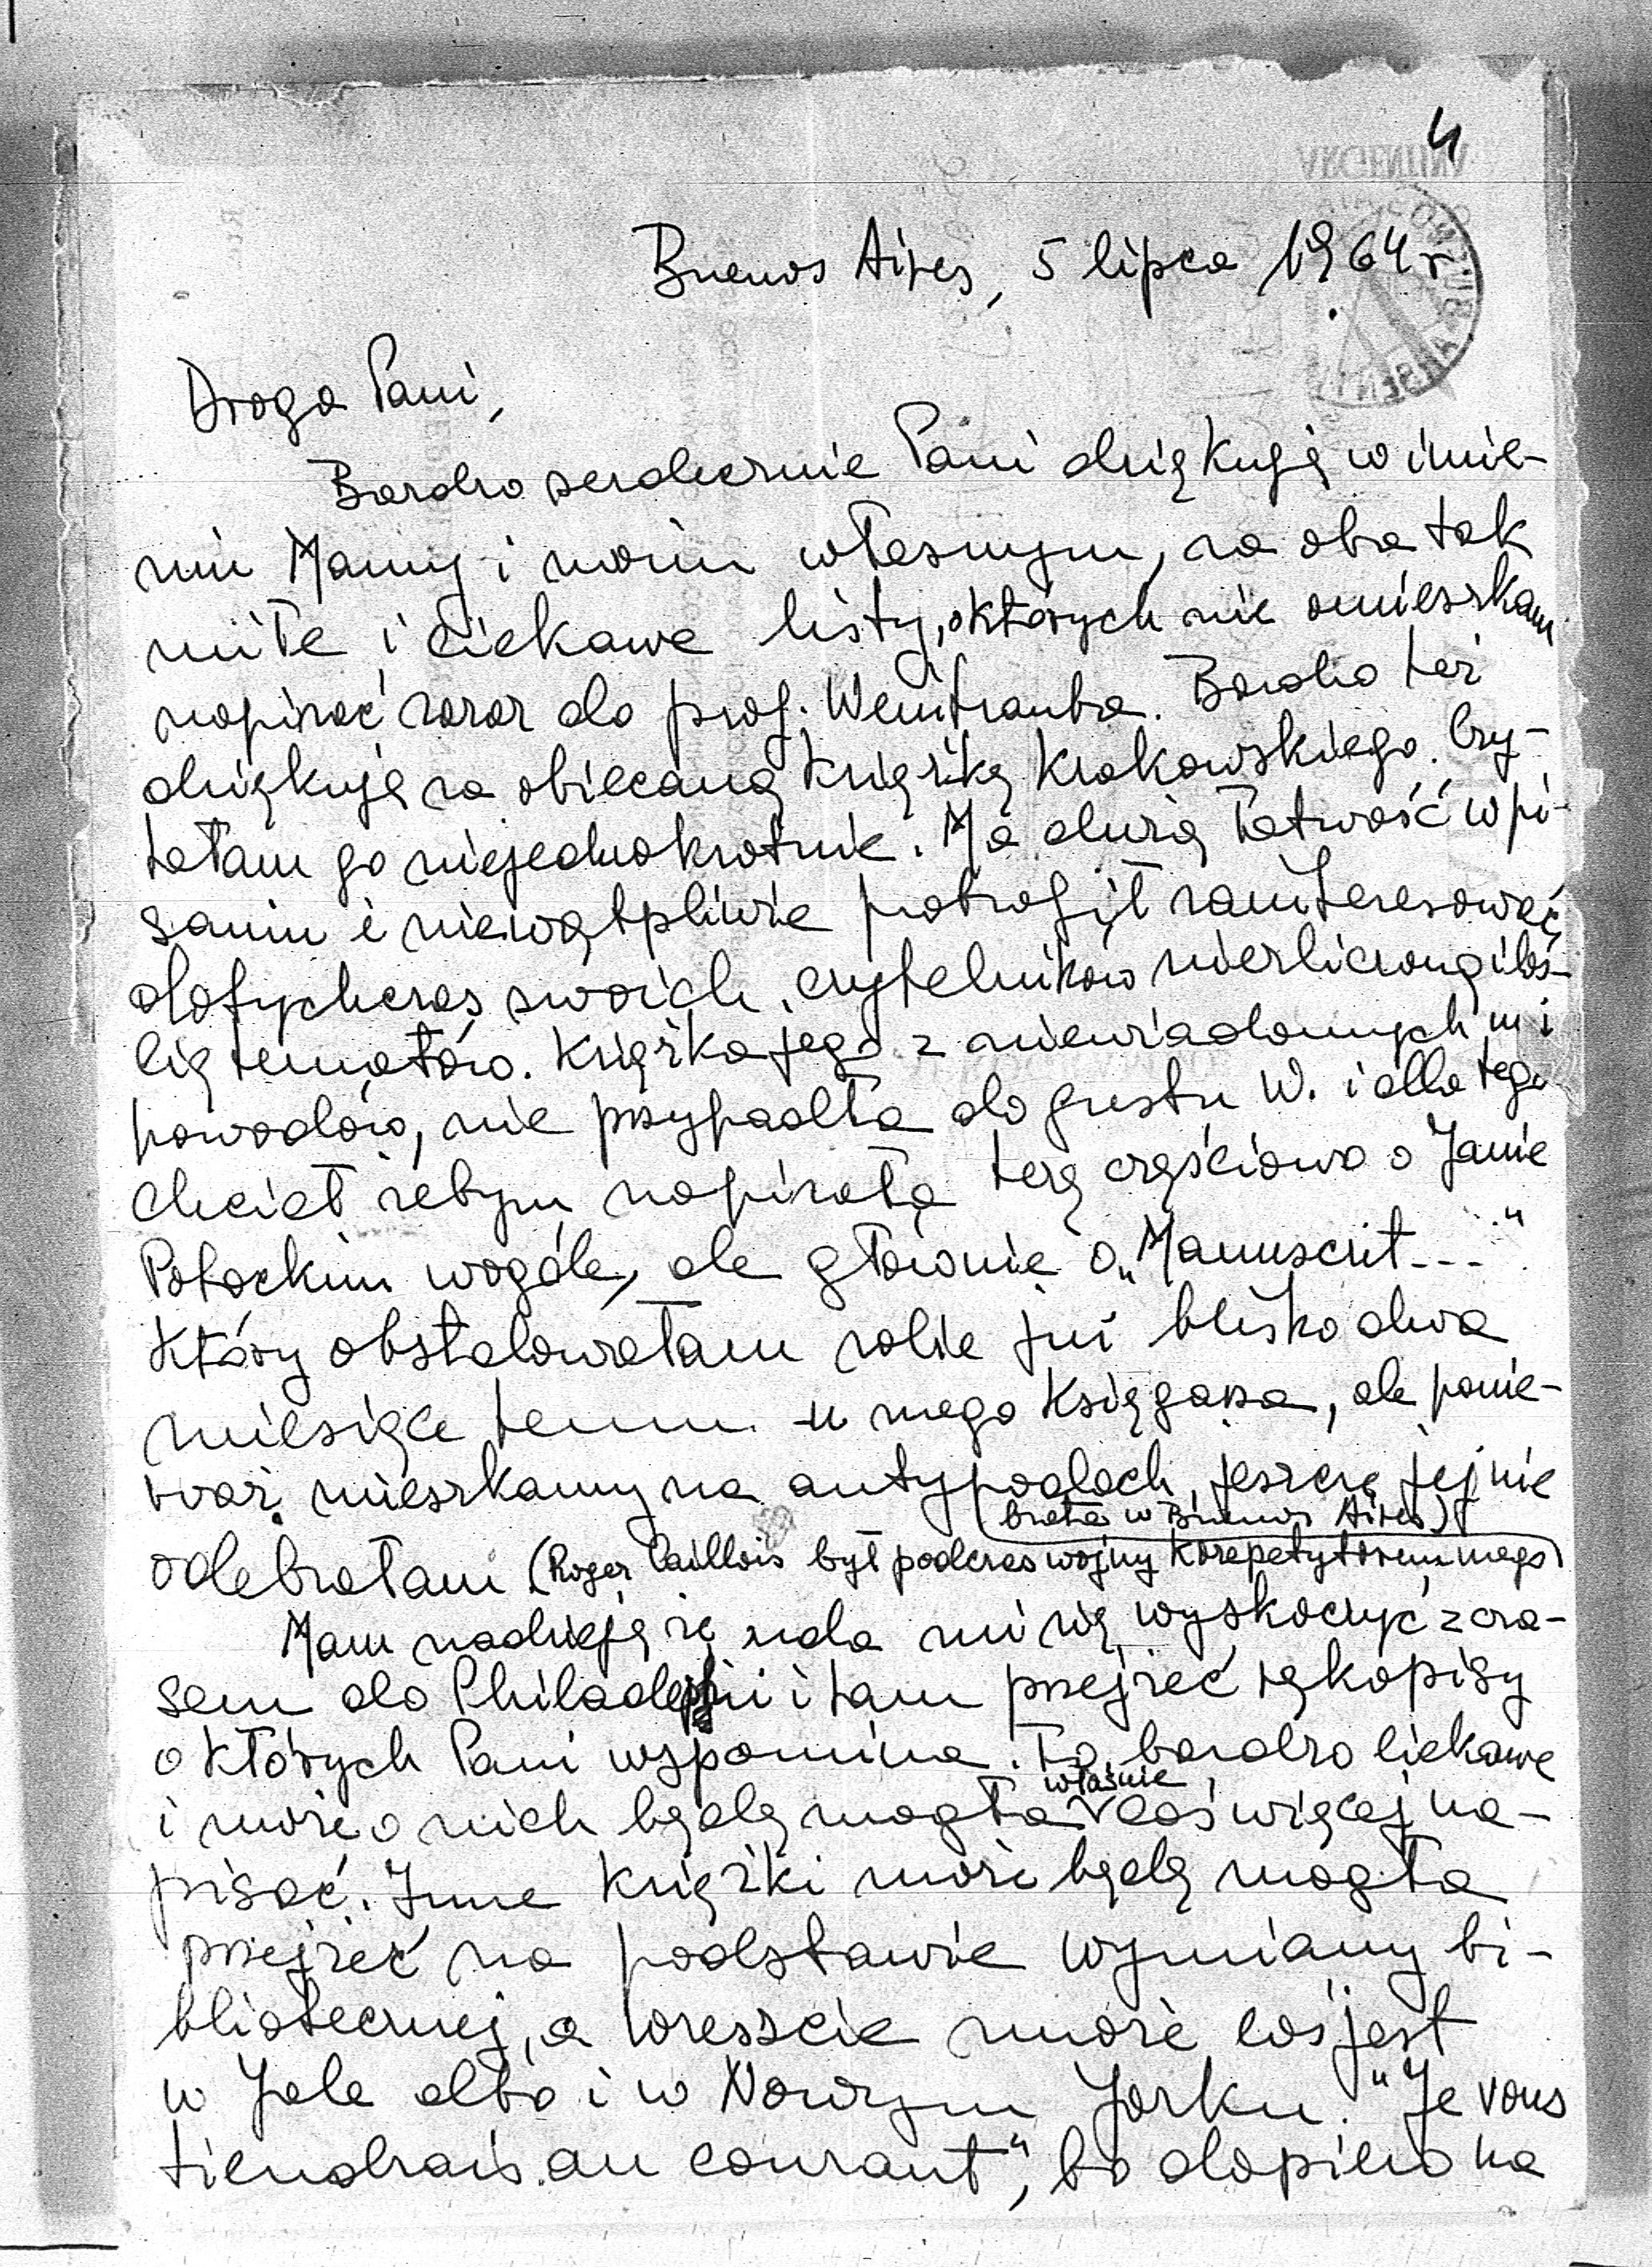 4
Buenos Aires, 5 lipca 1964 r.
Droga Pani,
Bardzo serdecznie Pani dziękuję w imie-
niu Mamy i moim własnym, za oba tak
miłe i ciekawe listy, o których nie omieszkam
napisać zaraz do prof. Weintrauba. Bardzo też
dziękuję za obiecaną książkę Krakowskiego. Czy-
tałam go niejednokrotnie. Ma dużą łatwość w pi-
saniu i niewątpliwie potrafił zainteresować
dotychczas swoich czytelników niezliczoną iloś-
cią tematów. Książka jego z niewiadomych mi
powodów, nie przypadła do gustu W. i dla tego
chciał żebym napisała tezę częściowo o Janie
Potockim wogóle, ale głównie o „Manuscrit---"
który obstalowałam sobie już blisko dwa
miesiące temu u mego księgarza, ale ponie-
waż mieszkamy na antypodach, jeszcze jej nie
odebrałam (Roger Caillois był podczas wojny korepetytorem mego
brata w Buenos Aires)
Mam nadzieję że uda mi się wyskoczyć z cza-
sem do Philadelphii i tam przejrzeć rękopisy
o których Pani wspomina. To bardzo ciekawe
i może o nich będę mogła właśnie coś więcej na-
pisać. Inne książki może będę mogła
przejrzeć na podstawie wymiany bi-
bliotecznej, a wreszcie może coś jest
w Yale albo i w Nowym Jorku. "Je vous
tiendrais au courant", bo dopiero na